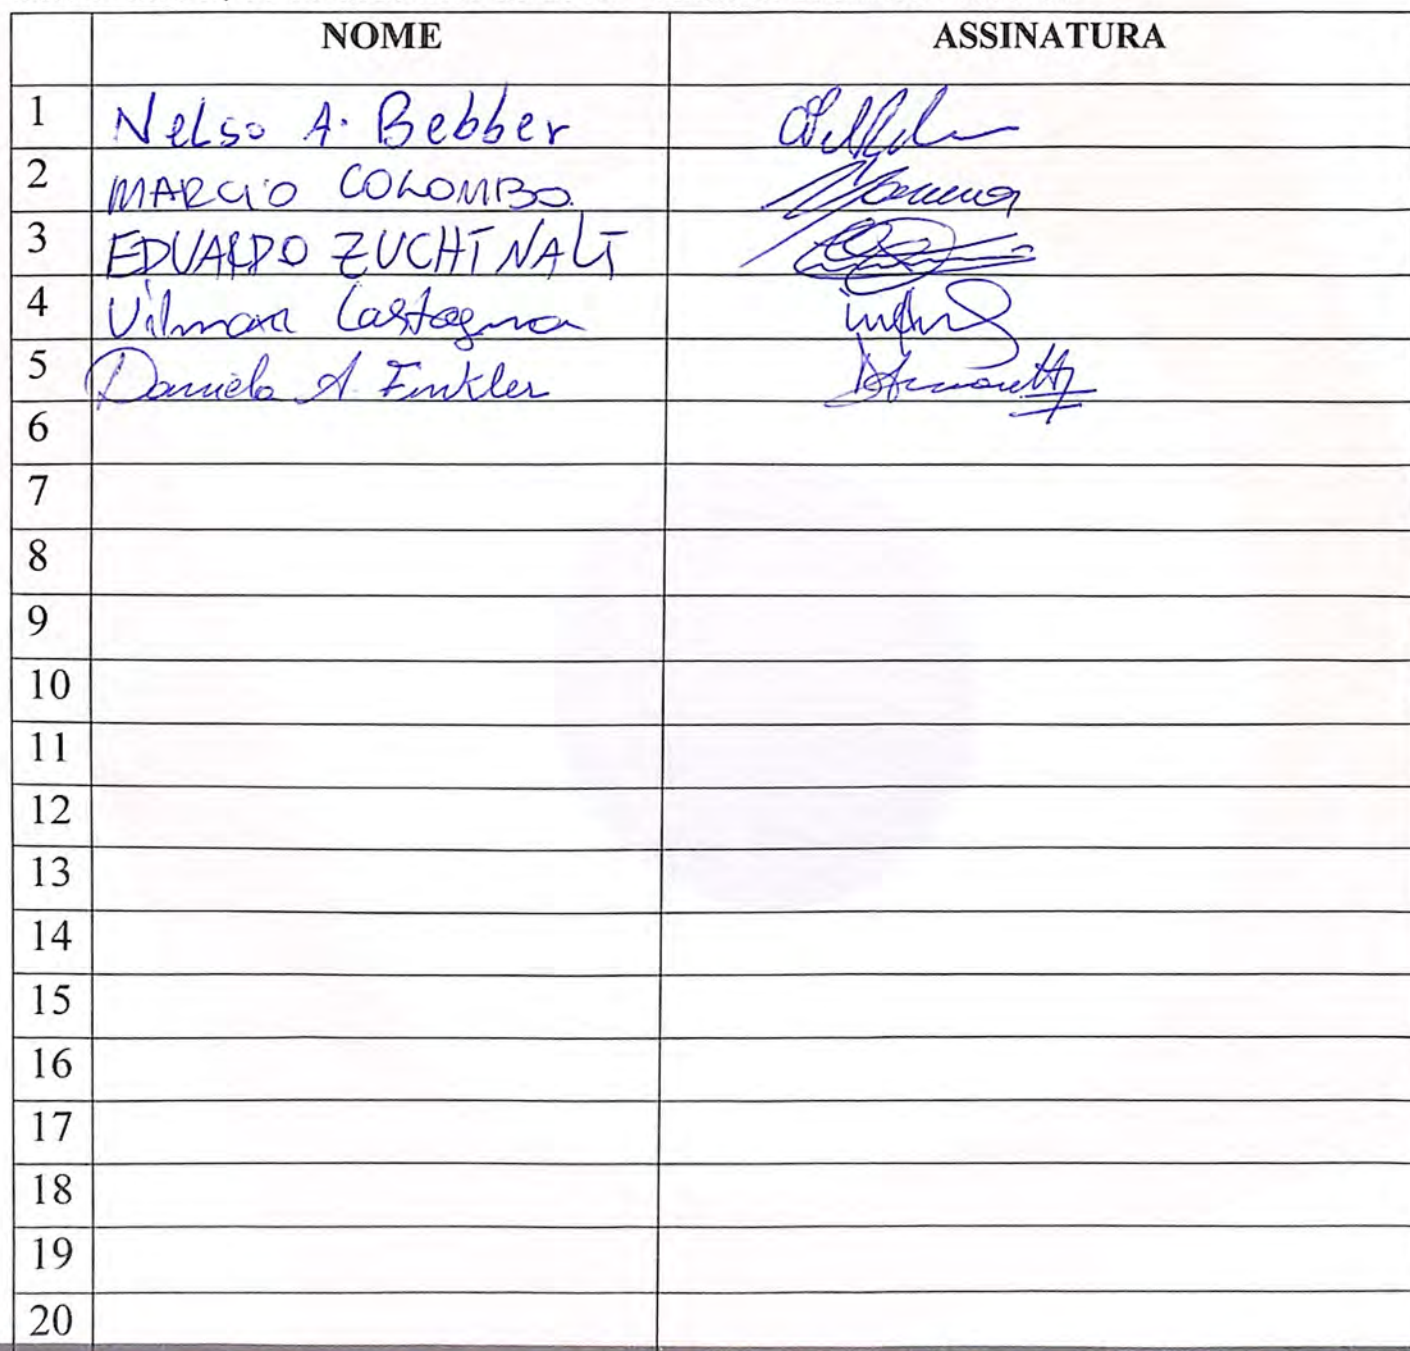 NOME ASSINATURA
1 Nelso A. Bebber
2 MARCIO COLOMBO
3 EDUARDO ZUCHINALI
4 Vilmar Castagna
5 Daniela A. Finkler
6
7
8
9
10
11
12
13
14
15
16
17
18
19
20